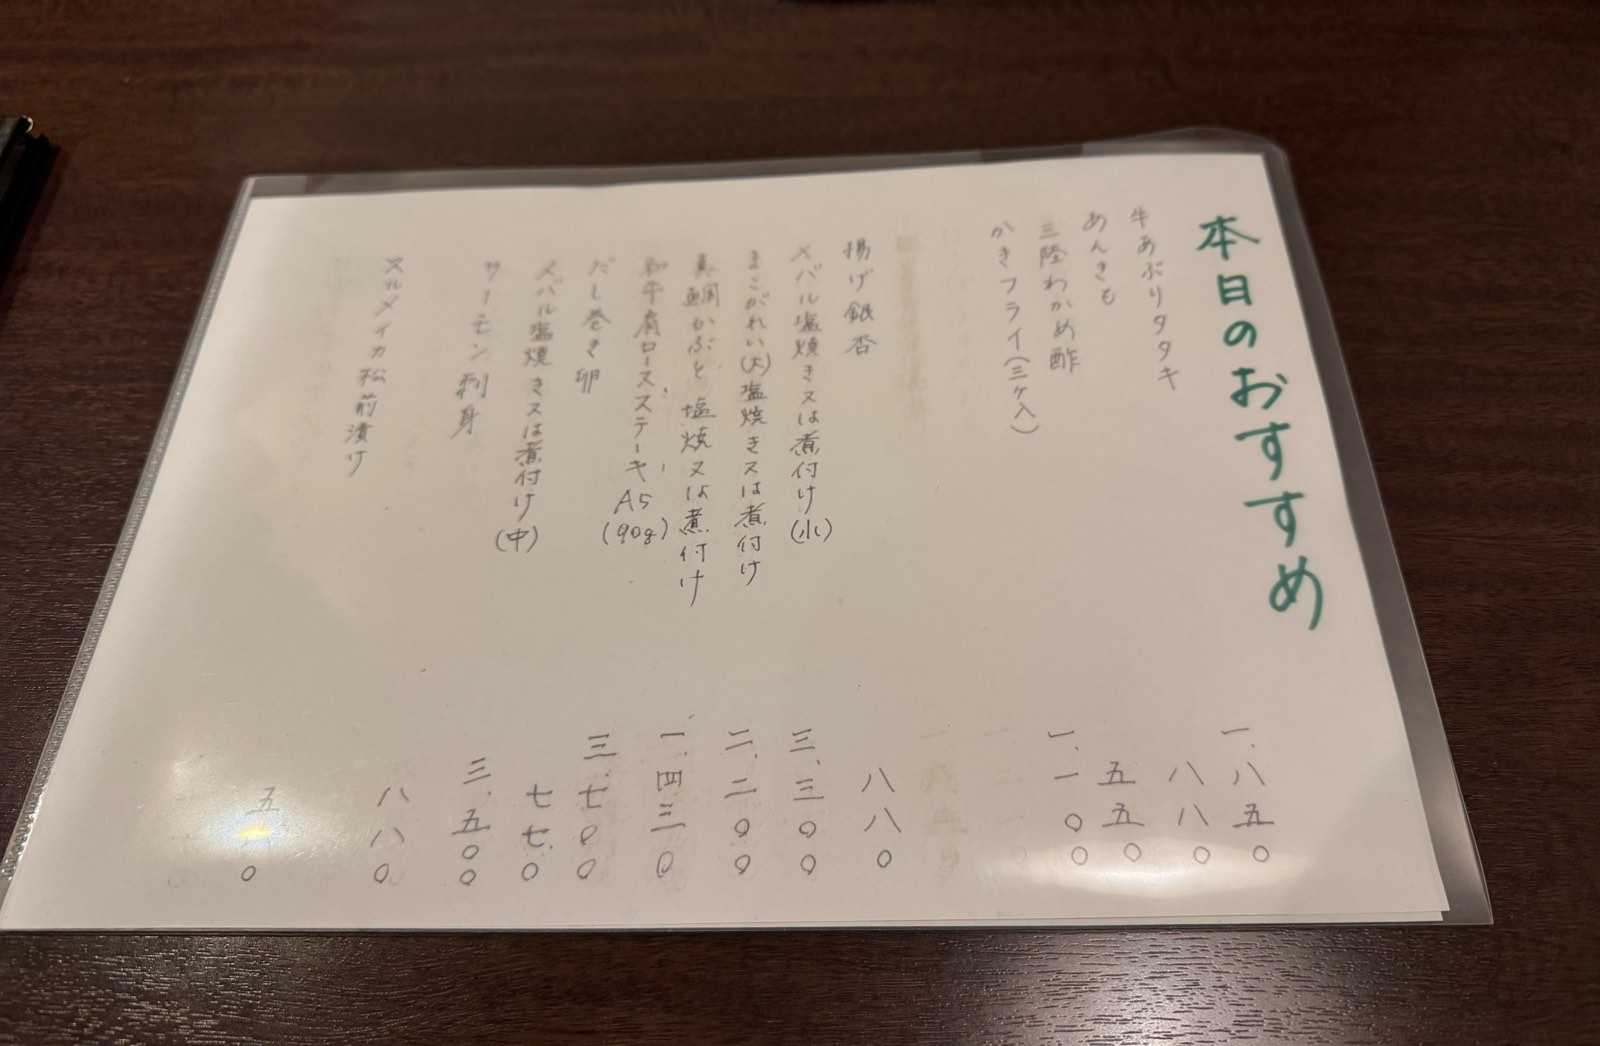 本日のおすすめ
牛あぶりタタキ 一、八五〇
あんきも 八八〇
三陸わかめ酢 五五〇
かきフライ(三ヶ入) 一、一〇〇
揚げ銀杏 八八〇
メバル塩焼き又は煮付け(小) 三、三〇〇
まこがれい(大)塩焼き又は煮付け 二、二〇〇
真鯛かぶと塩焼又は煮付け 一、四三〇
和牛肩ロースステーキ A5 (90g) 三、七〇〇
だし巻き卵 七七〇
メバル塩焼き又は煮付け(中) 三、五〇〇
サーモン刺身 八八〇
スルメイカ松前漬け